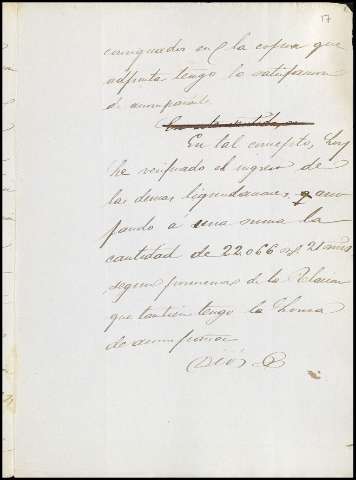 17
consignados en la copia que
adjunta tengo la satisfaccion
de acompañarle
En tal concepto, hoy
he verificado el ingreso de
las demas liquidaciones,
a una suma la
cantidad de 22.066 21
segun pormenor de la Relacion
que tambien tengo la honra
de acompañar
Dios G